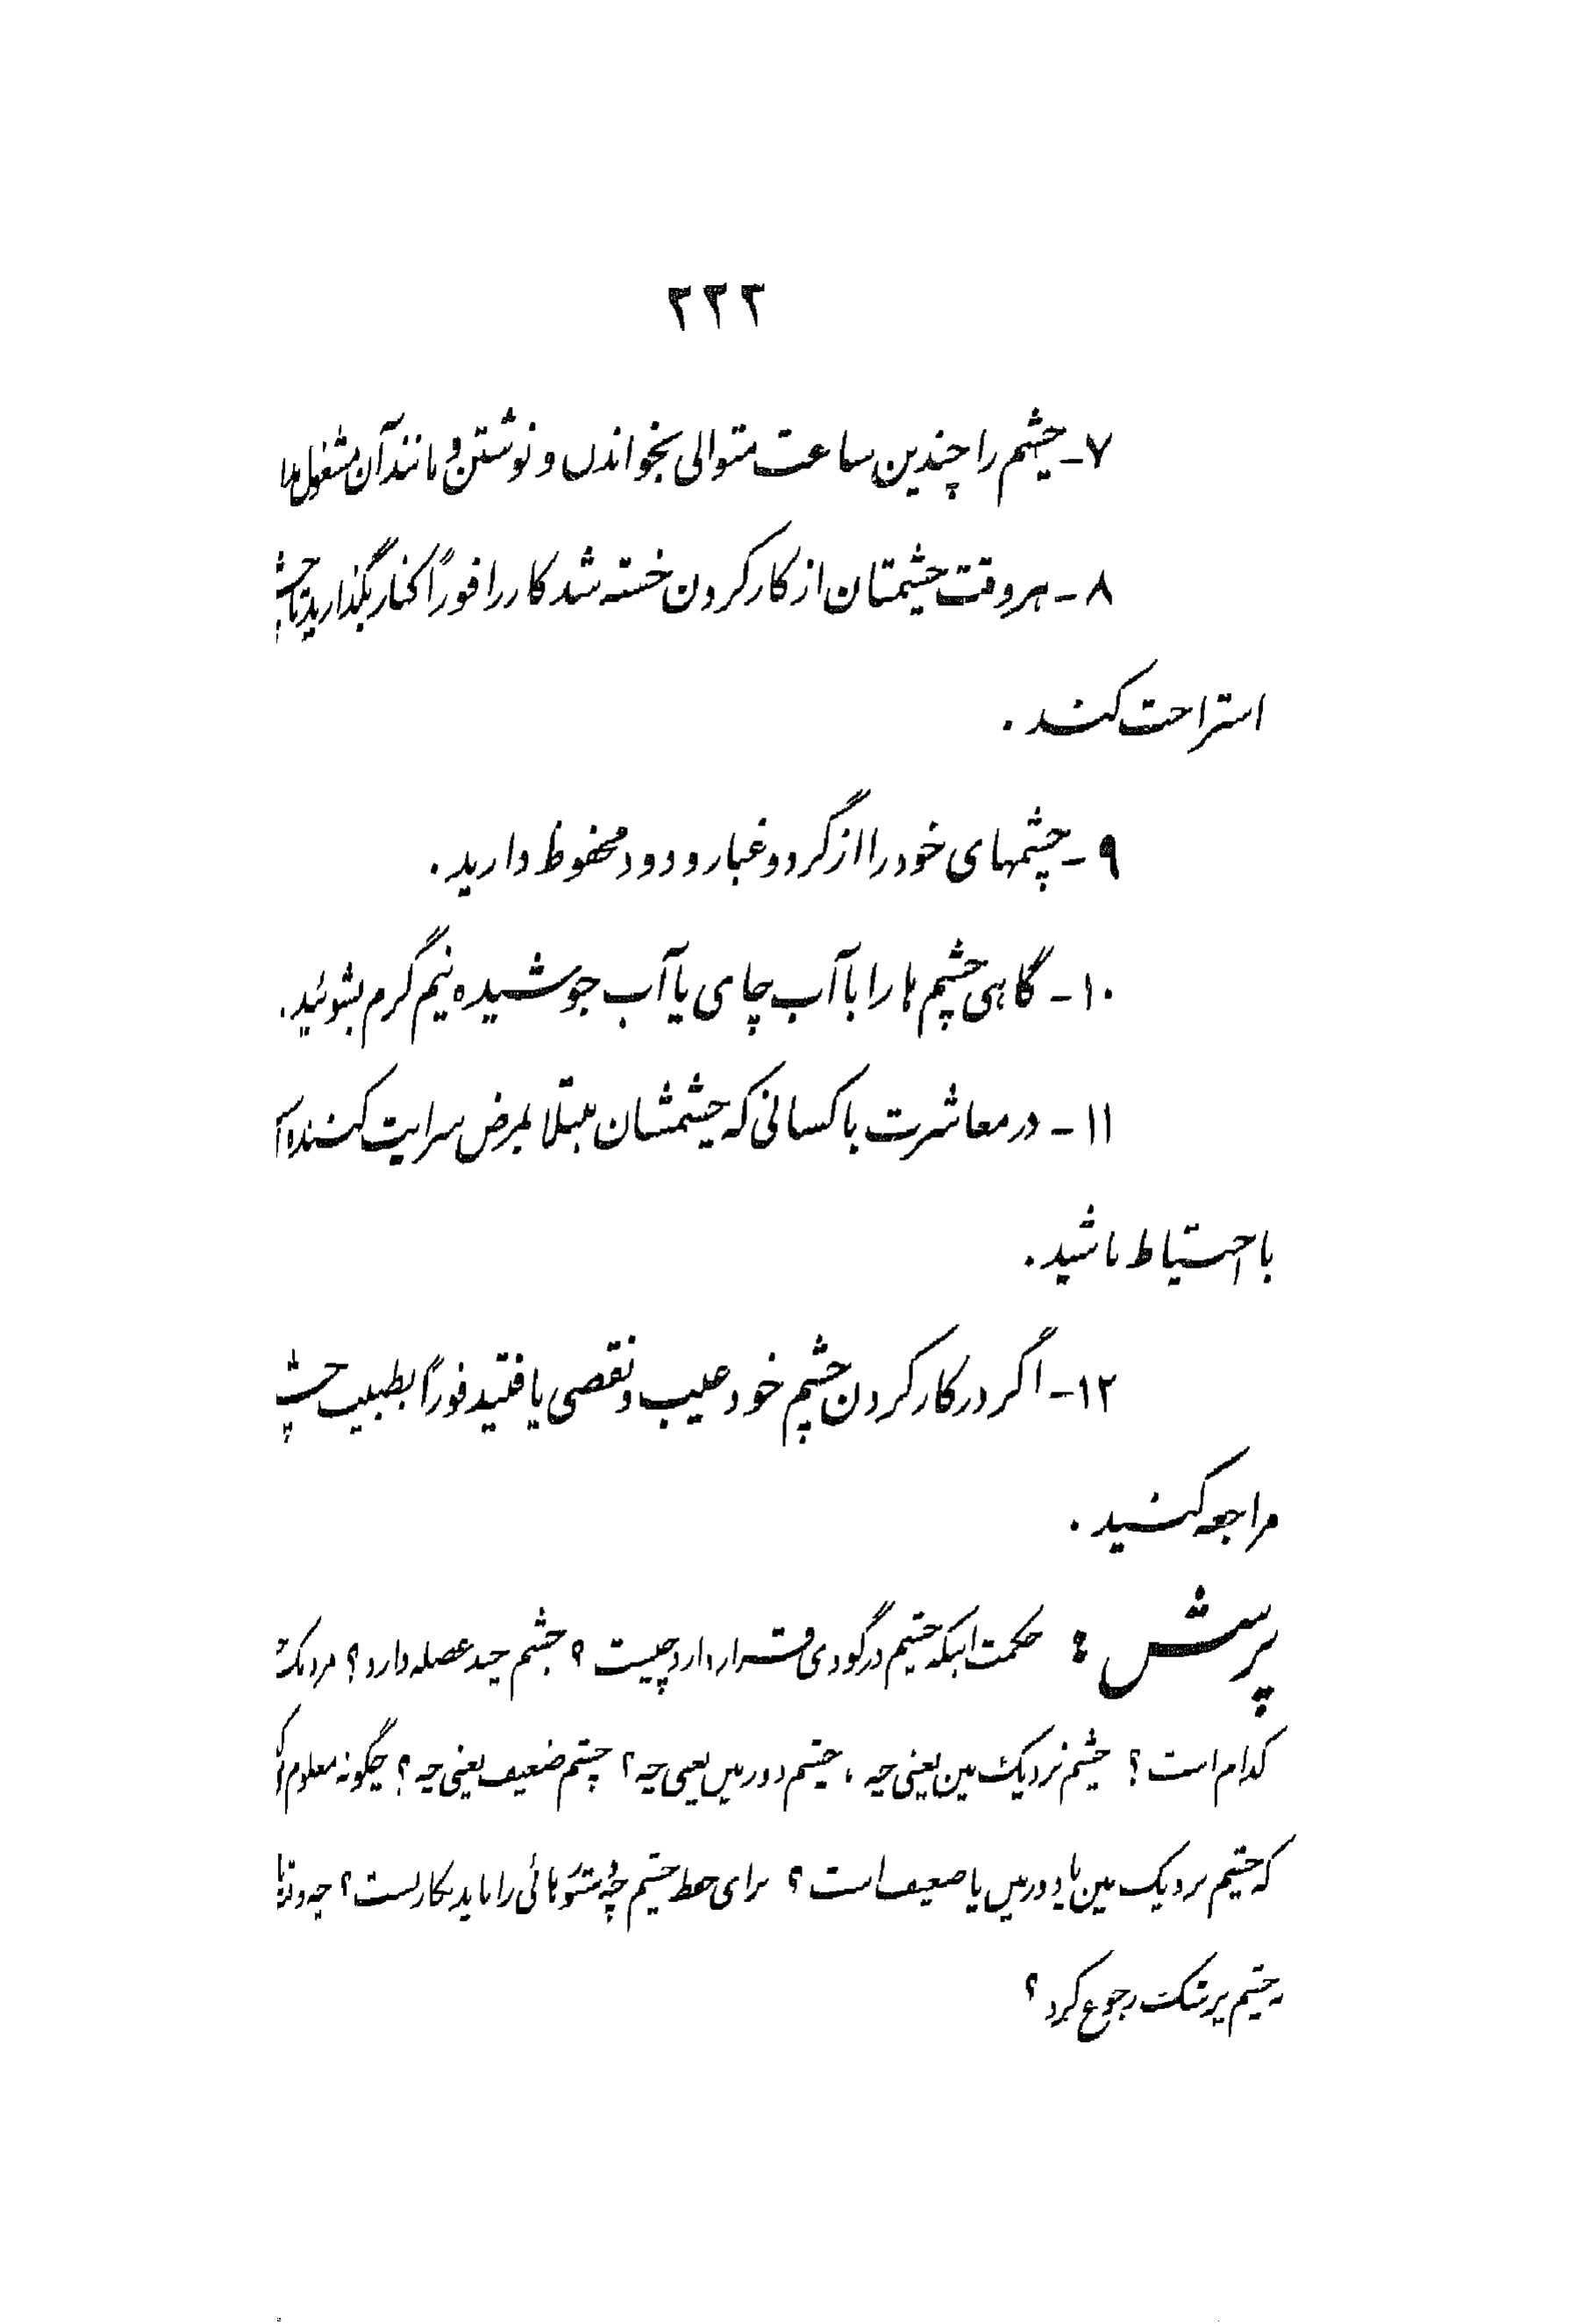 ۲۲۲
۷- چشم را چندین ساعت متوالی بخواندن و نوشتن و مانند آن مشغول
۸- هر وقت چشمتان از کار کردن خسته شد کار را فوراً کنار بگذارید تا
استراحت کند .
۹- چشمهای خود را از گرد و غبار و دود محفوظ دارید .
۱۰- گاهی چشم ها را با آب چای یا آب جوشیده نیم گرم بشوئید .
۱۱- در معاشرت با کسانی که چشمشان مبتلا بمرض سرایت کننده
با احتیاط باشید .
۱۲- اگر در کار کردن چشم خود عیب و نقصی یافتید فوراً بطبیب
مراجعه کنید .
پرسش : حکمت اینکه چشم در گودی قرار دارد چیست ؟ چشم چند عضله دارد ؟
کدام است ؟ چشم نزدیک بین یعنی چه ، چشم دوربین یعنی چه ؟ چشم ضعیف یعنی چه ؟ چگونه معلوم
که چشم نزدیک بین یا دوربین یا ضعیف است ؟ برای حفظ چشم چه دستورهائی را باید بکار بست ؟ چه وقت
چشم پزشک رجوع کرد ؟